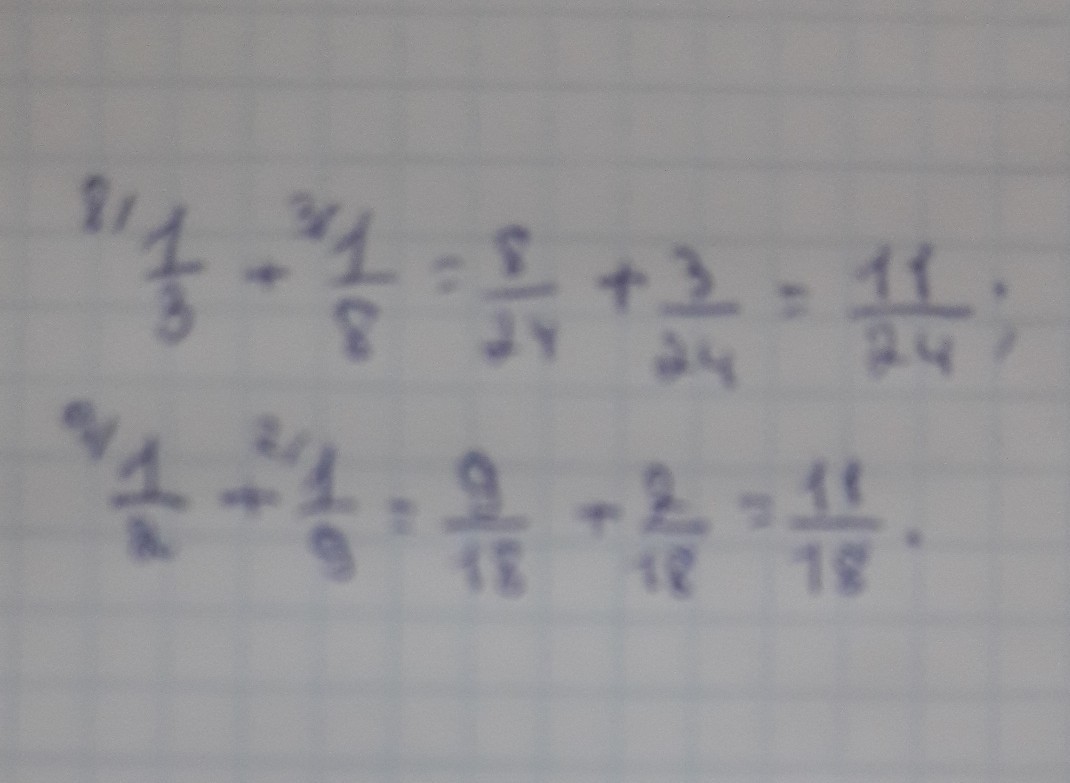 8/ 1/3 + 3/ 1/8 = 8/24 + 3/24 = 11/24 ;
9/ 1/2 + 2/ 1/9 = 9/18 + 2/18 = 11/18 .